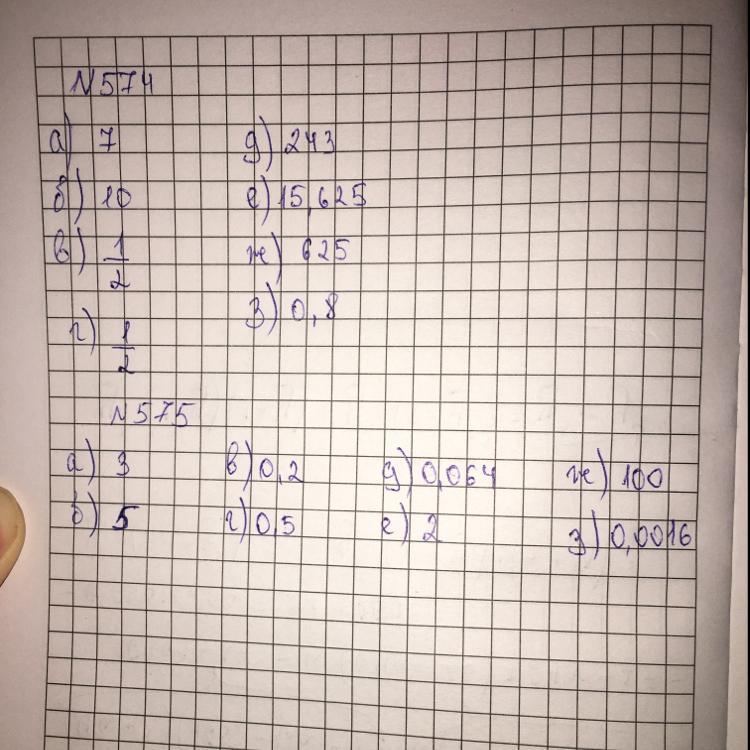 N574
а) 7 д) 243
б) 10 е) 15,625
в) 1/2 ж) 625
з) 0,8
г) 1/2
N575
а) 3 в) 0,2 д) 0,064 ж) 100
б) 5 г) 0,5 е) 2 з) 0,0016